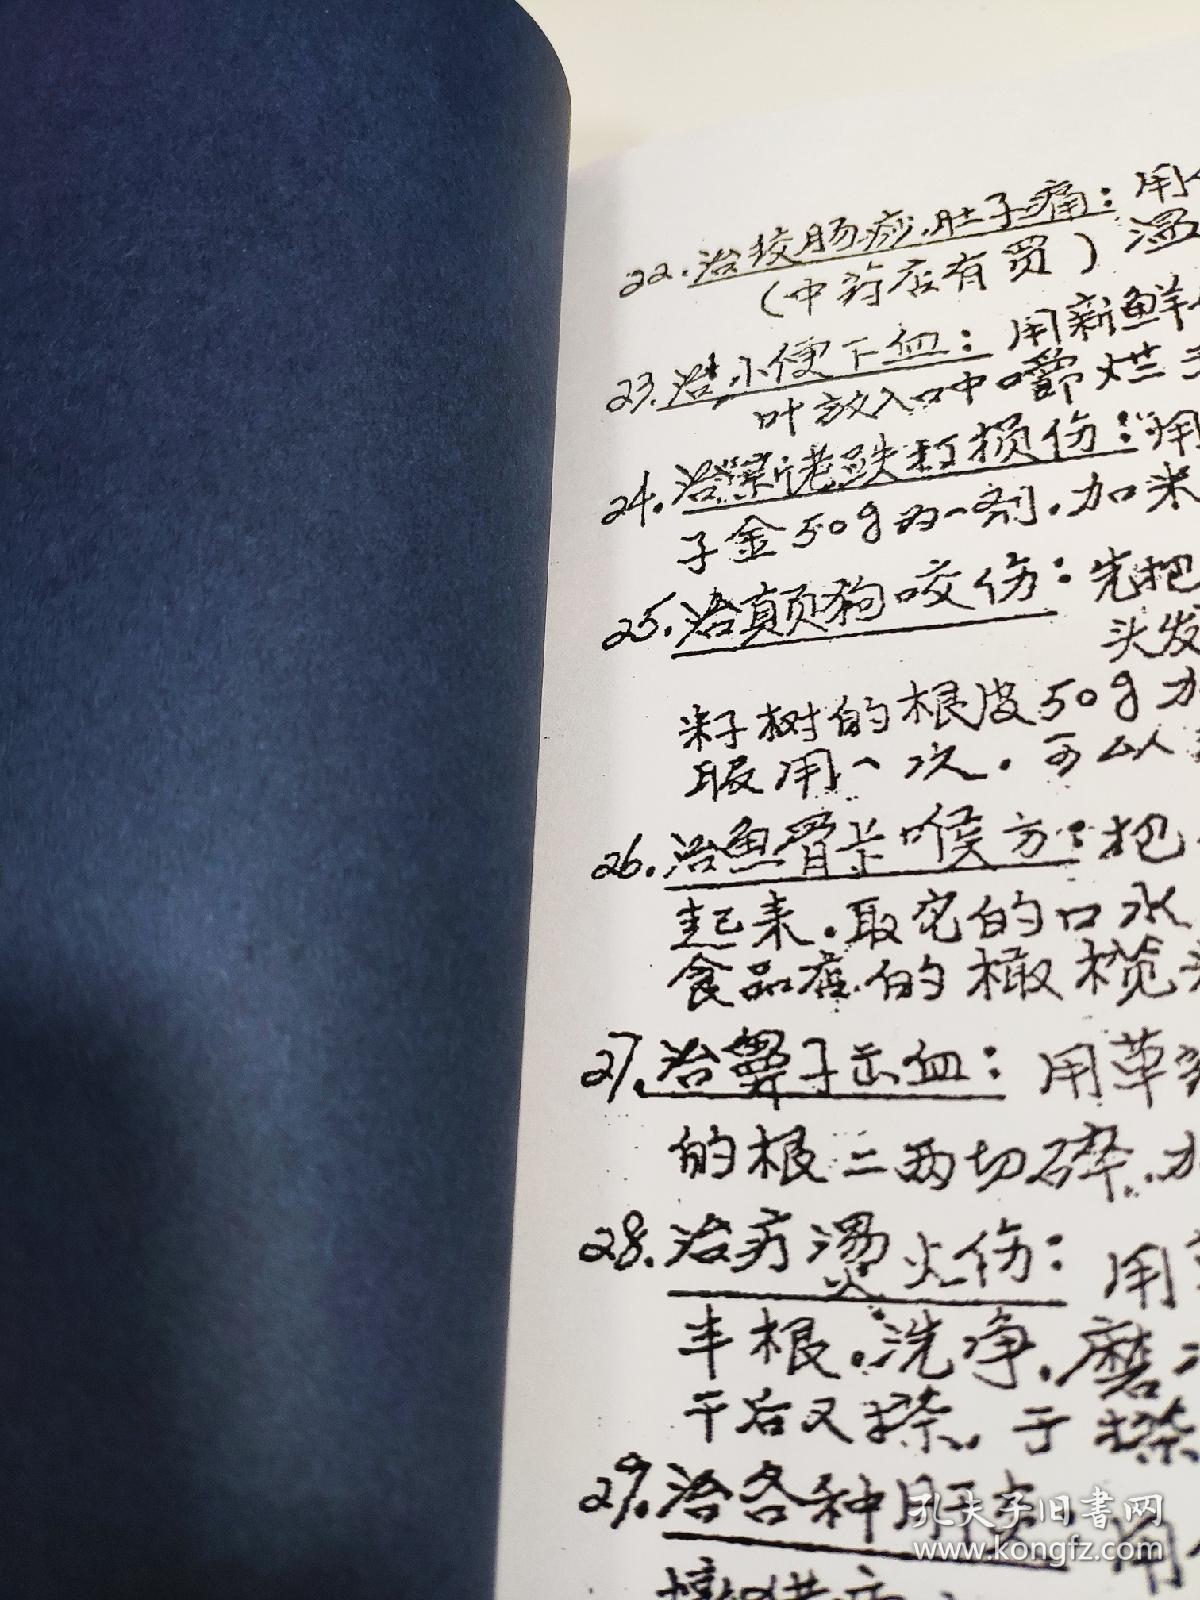 22.治绞肠痧.肚子痛：用
（中药店有买）温
23.治小便下血：用新鲜
叶放入口中嚼烂
24.治新老跌打损伤：用
子金50g为一剂.加米
25.治颠狗咬伤：先把
头发
籽树的根皮50g加
服用一次.可以
26.治鱼骨卡喉方：把
起来.取它的口水
食品店的橄榄
27.治鼻子出血：用草药
的根二两切碎.加
28.治疗烫火伤：用
丰根.洗净.磨
干后又搽.于搽
29.治各种肝炎 用
孔夫子旧书网
www.kongfz.com